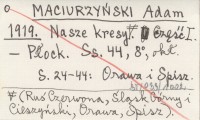 MACIURZYŃSKI Adam
1919. Nasze kresy.* Część I.
– Płock. Ss. 44, 8°, okł.
S. 24-44: Orawa i Spisz.
*(Ruś Czerwona, Śląsk Górny i
Cieszyński, Orawa, Spisz).